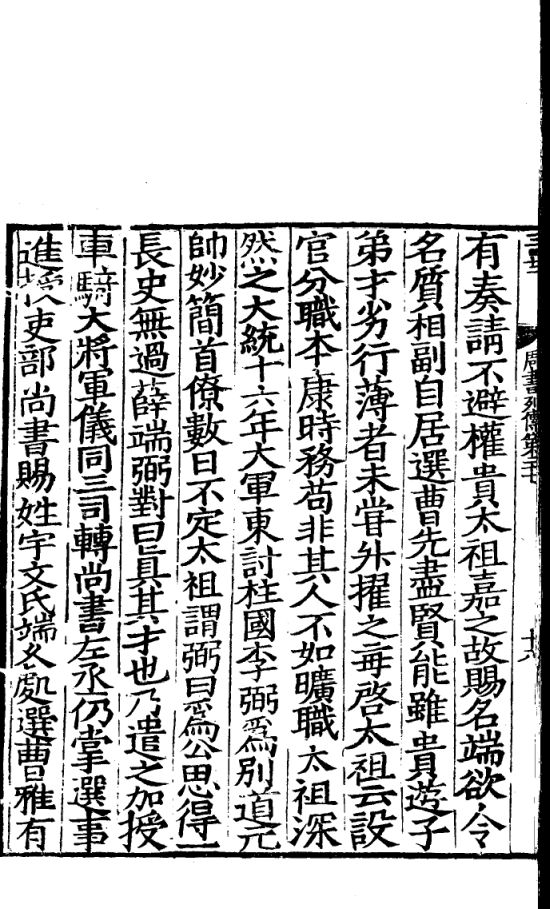 周書列傳第二十七
十六
有奏請不避權貴太祖嘉之故賜名端欲令
名質相副自居選曹先盡賢能雖貴遊子
弟才劣行薄者未嘗升擢之每啓太祖云設
官分職本康時務苟非其人不如曠職太祖深
然之大統十六年大軍東討柱國李弼爲別道元
帥妙簡首僚數日不定太祖謂弼曰爲公思得一
長史無過薛端弼對曰眞其才也乃遣之加授
車騎大將軍儀同三司轉尚書左丞仍掌選事
進授吏部尚書賜姓宇文氏端久處選曹雅有